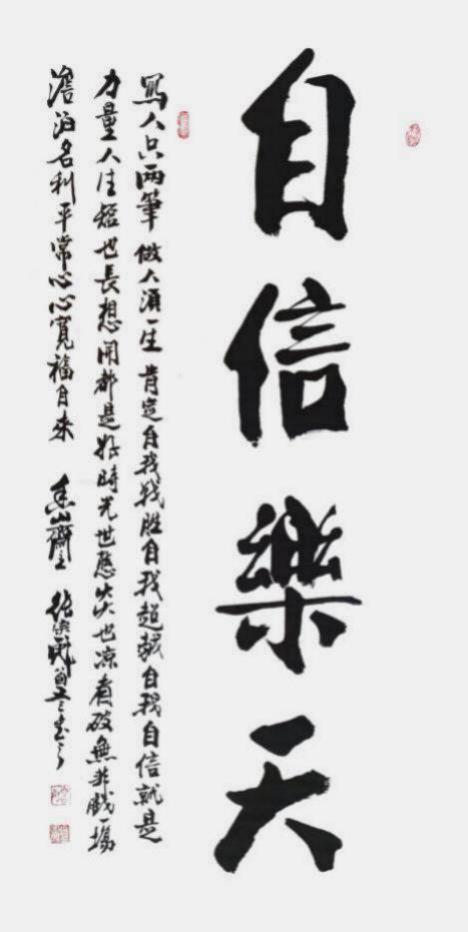 自信樂天
寫人只兩筆做人須一生肯定自我戰胜自我超越自我自信就是
力量人生短也長想開都是好時光世態炎也凉看破無非戲一場
澹泊名利平常心心寬福自來 山齋主